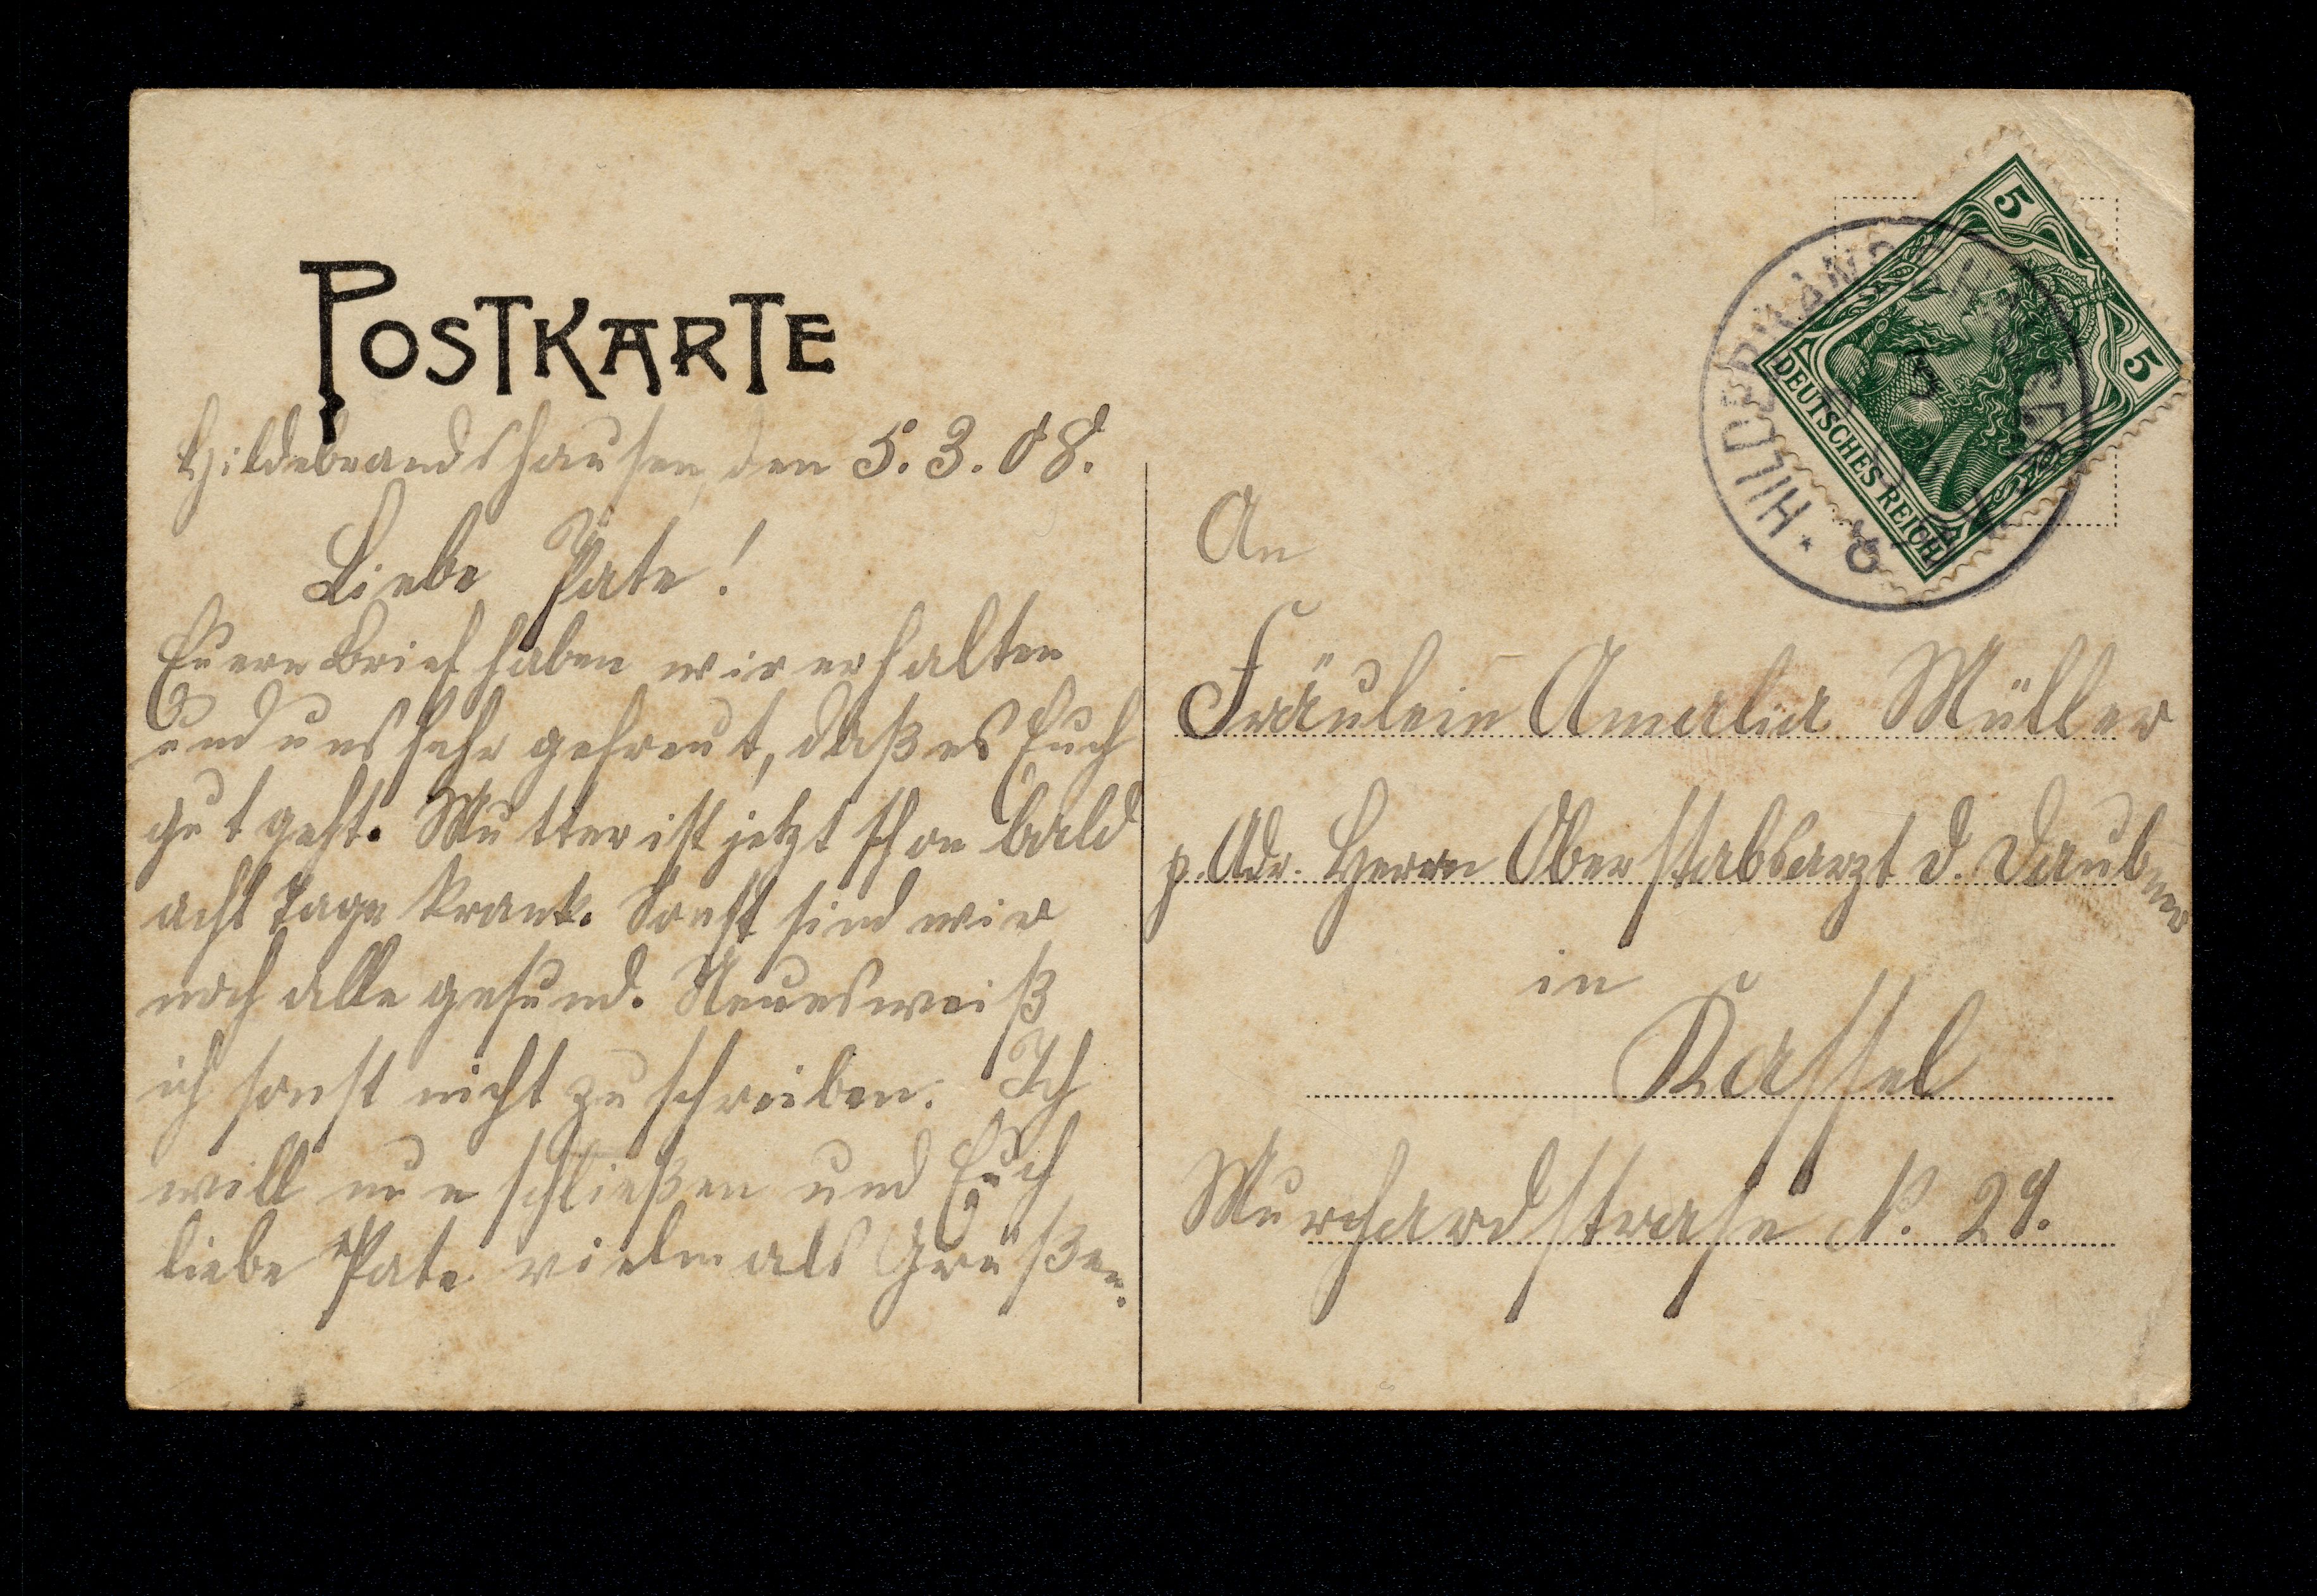 POSTKARTE
Hildebrandshausen, den 5.3.08.
Liebe Pate!
Euern Brief haben wir erhalten
und uns sehr gefreut, daß es Euch
gut geht. Mutter ist jetzt schon bald
acht Tage krank. Sonst sind wir
noch alle gesund. Neues weiß
ich sonst nicht zu schreiben. Ich
will nun schließen und Euch
liebe Pate vielmals Grüßen.
5
5
DEUTSCHES REICH
An
Fräulein Amalia Müller
p. Adr. Herrn Oberstabsarzt d. Daubner
in
Kassel
Murhardstrase N. 29.